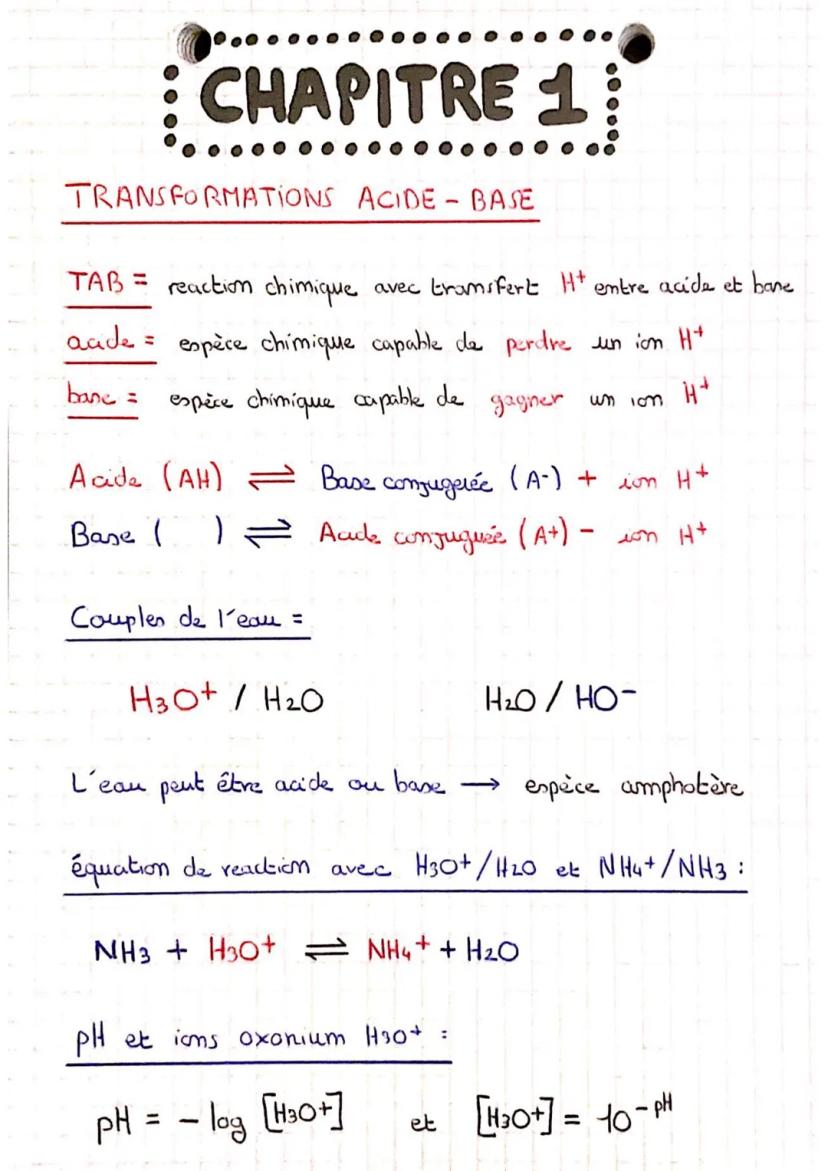 CHAPITRE 1
TRANSFORMATIONS ACIDE - BASE
TAB = reaction chimique avec transfert H+ entre acide et base
acide = espèce chimique capable de perdre un ion H+
base = espèce chimique capable de gagner un ion H+
Acide (AH) ⇌ Base conjugeuée (A-) + ion H+
Base ( ) ⇌ Acide conjuguée (A+) - ion H+
Couples de l'eau =
H3O+ / H2O H2O / HO-
L'eau peut être acide ou base → espèce amphotère
équation de reaction avec H3O+/H2O et NH4+/NH3 :
NH3 + H3O+ ⇌ NH4+ + H2O
pH et ions oxonium H3O+ :
pH = - log [H3O+] et [H3O+] = 10-pH